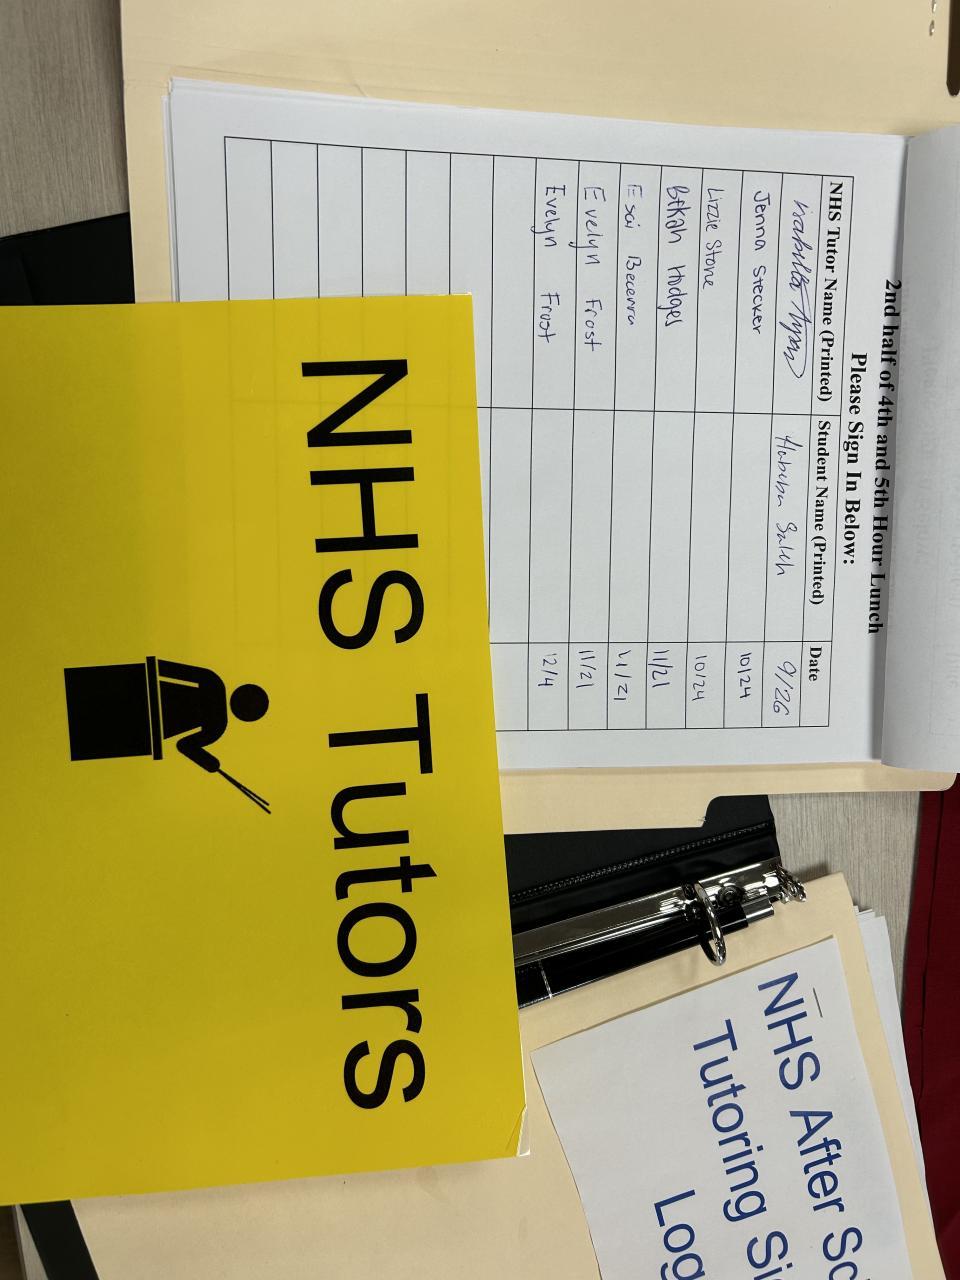 2nd half of 4th and 5th Hour Lunch
Please Sign In Below:
NHS Tutor Name (Printed) Student Name (Printed) Date
Isabella Habiba Saleh 9/26
Jenna Stecker 10/24
Lizzie Stone 10/24
Hodges 11/21
Esai Becerra 11/21
Evelyn Frost 11/21
Evelyn Frost 12/4
NHS Tutors
NHS After Sc
Tutoring Si
Log